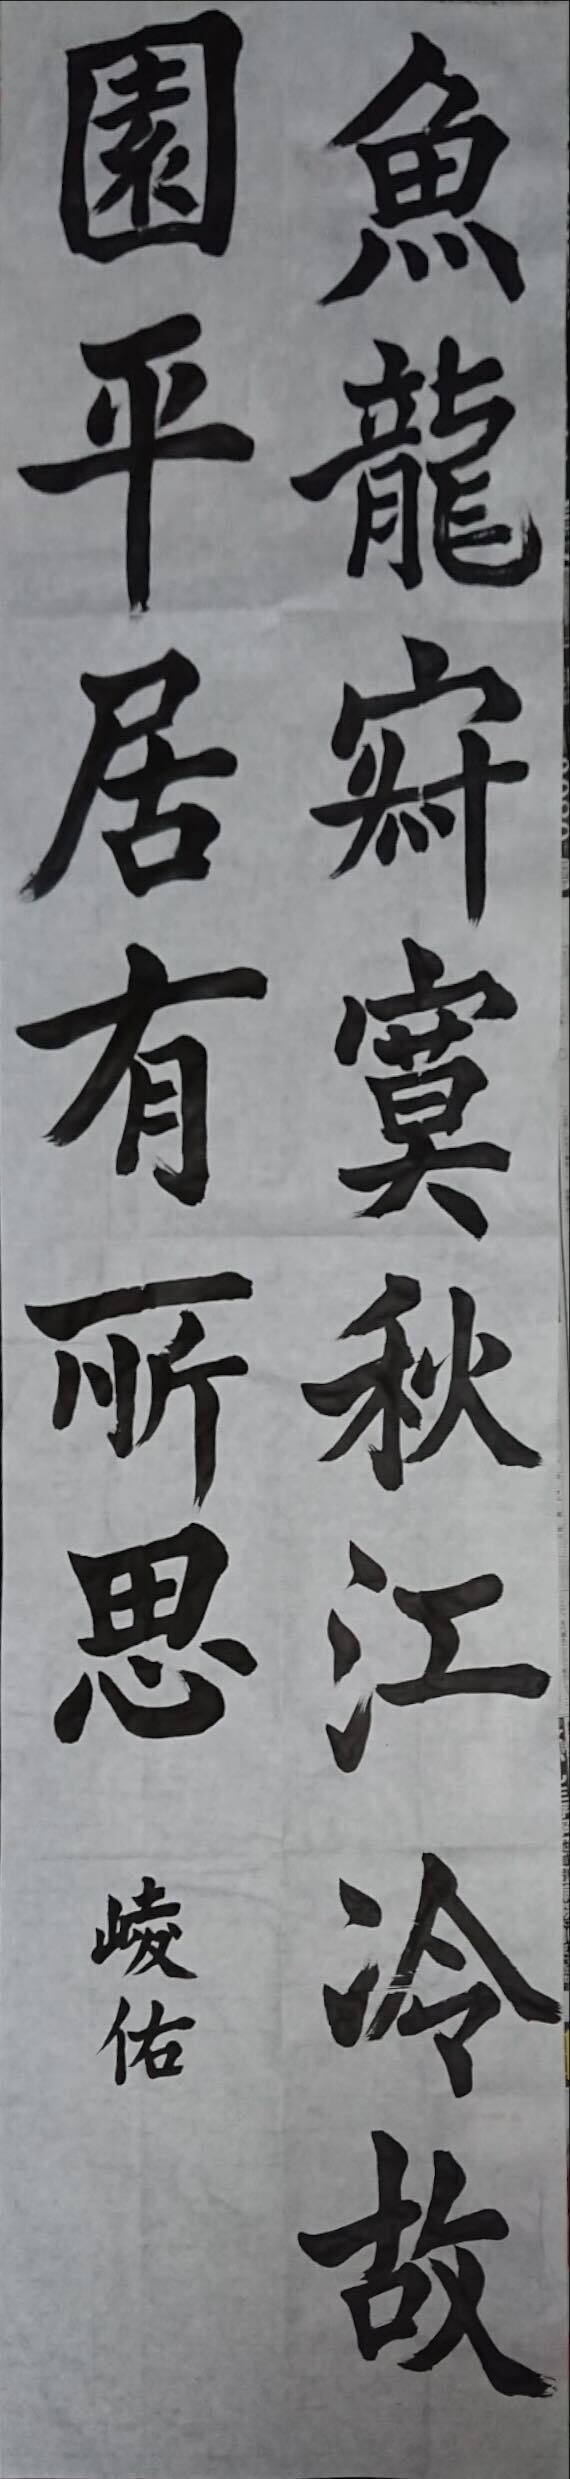 魚龍寂寞秋江冷故
園平居有所思
崚佑